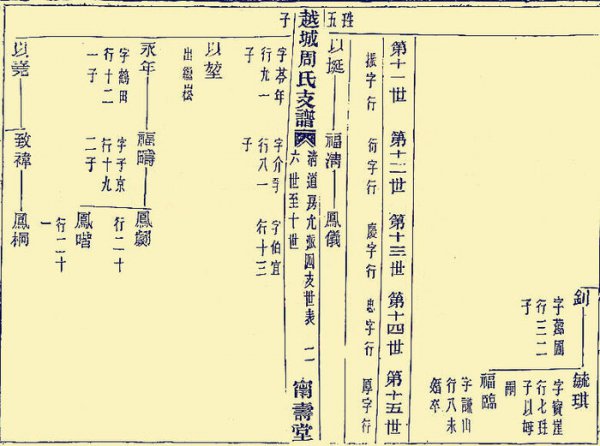 釗
字蔭園
行三二
子
毓琪
字寶崖
子以
嗣
福臨
字謙山
行八未
婚卒
第十一世 第十二世 第十三世 第十四世 第十五世
振字行 衍字行 慶字行 忠字行 厚字行
五子
以埏 福清 鳳儀
越城周氏支譜
六世至十世
二
甯壽堂
字苓年
行九一
子
字介孚
行八一
子
字伯宜
行十三
以堃
出繼崧
永年 福疇
字鶴田
行十二
一子
字子京
行十九
二子
行二十
鳳喈
行二十
一
以堯 致禕 鳳桐